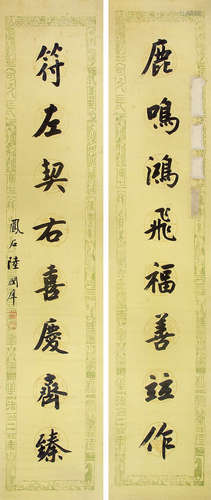 鹿鳴鴻飛福善竝作
符左契右喜慶齊臻
鳳石陸潤庠